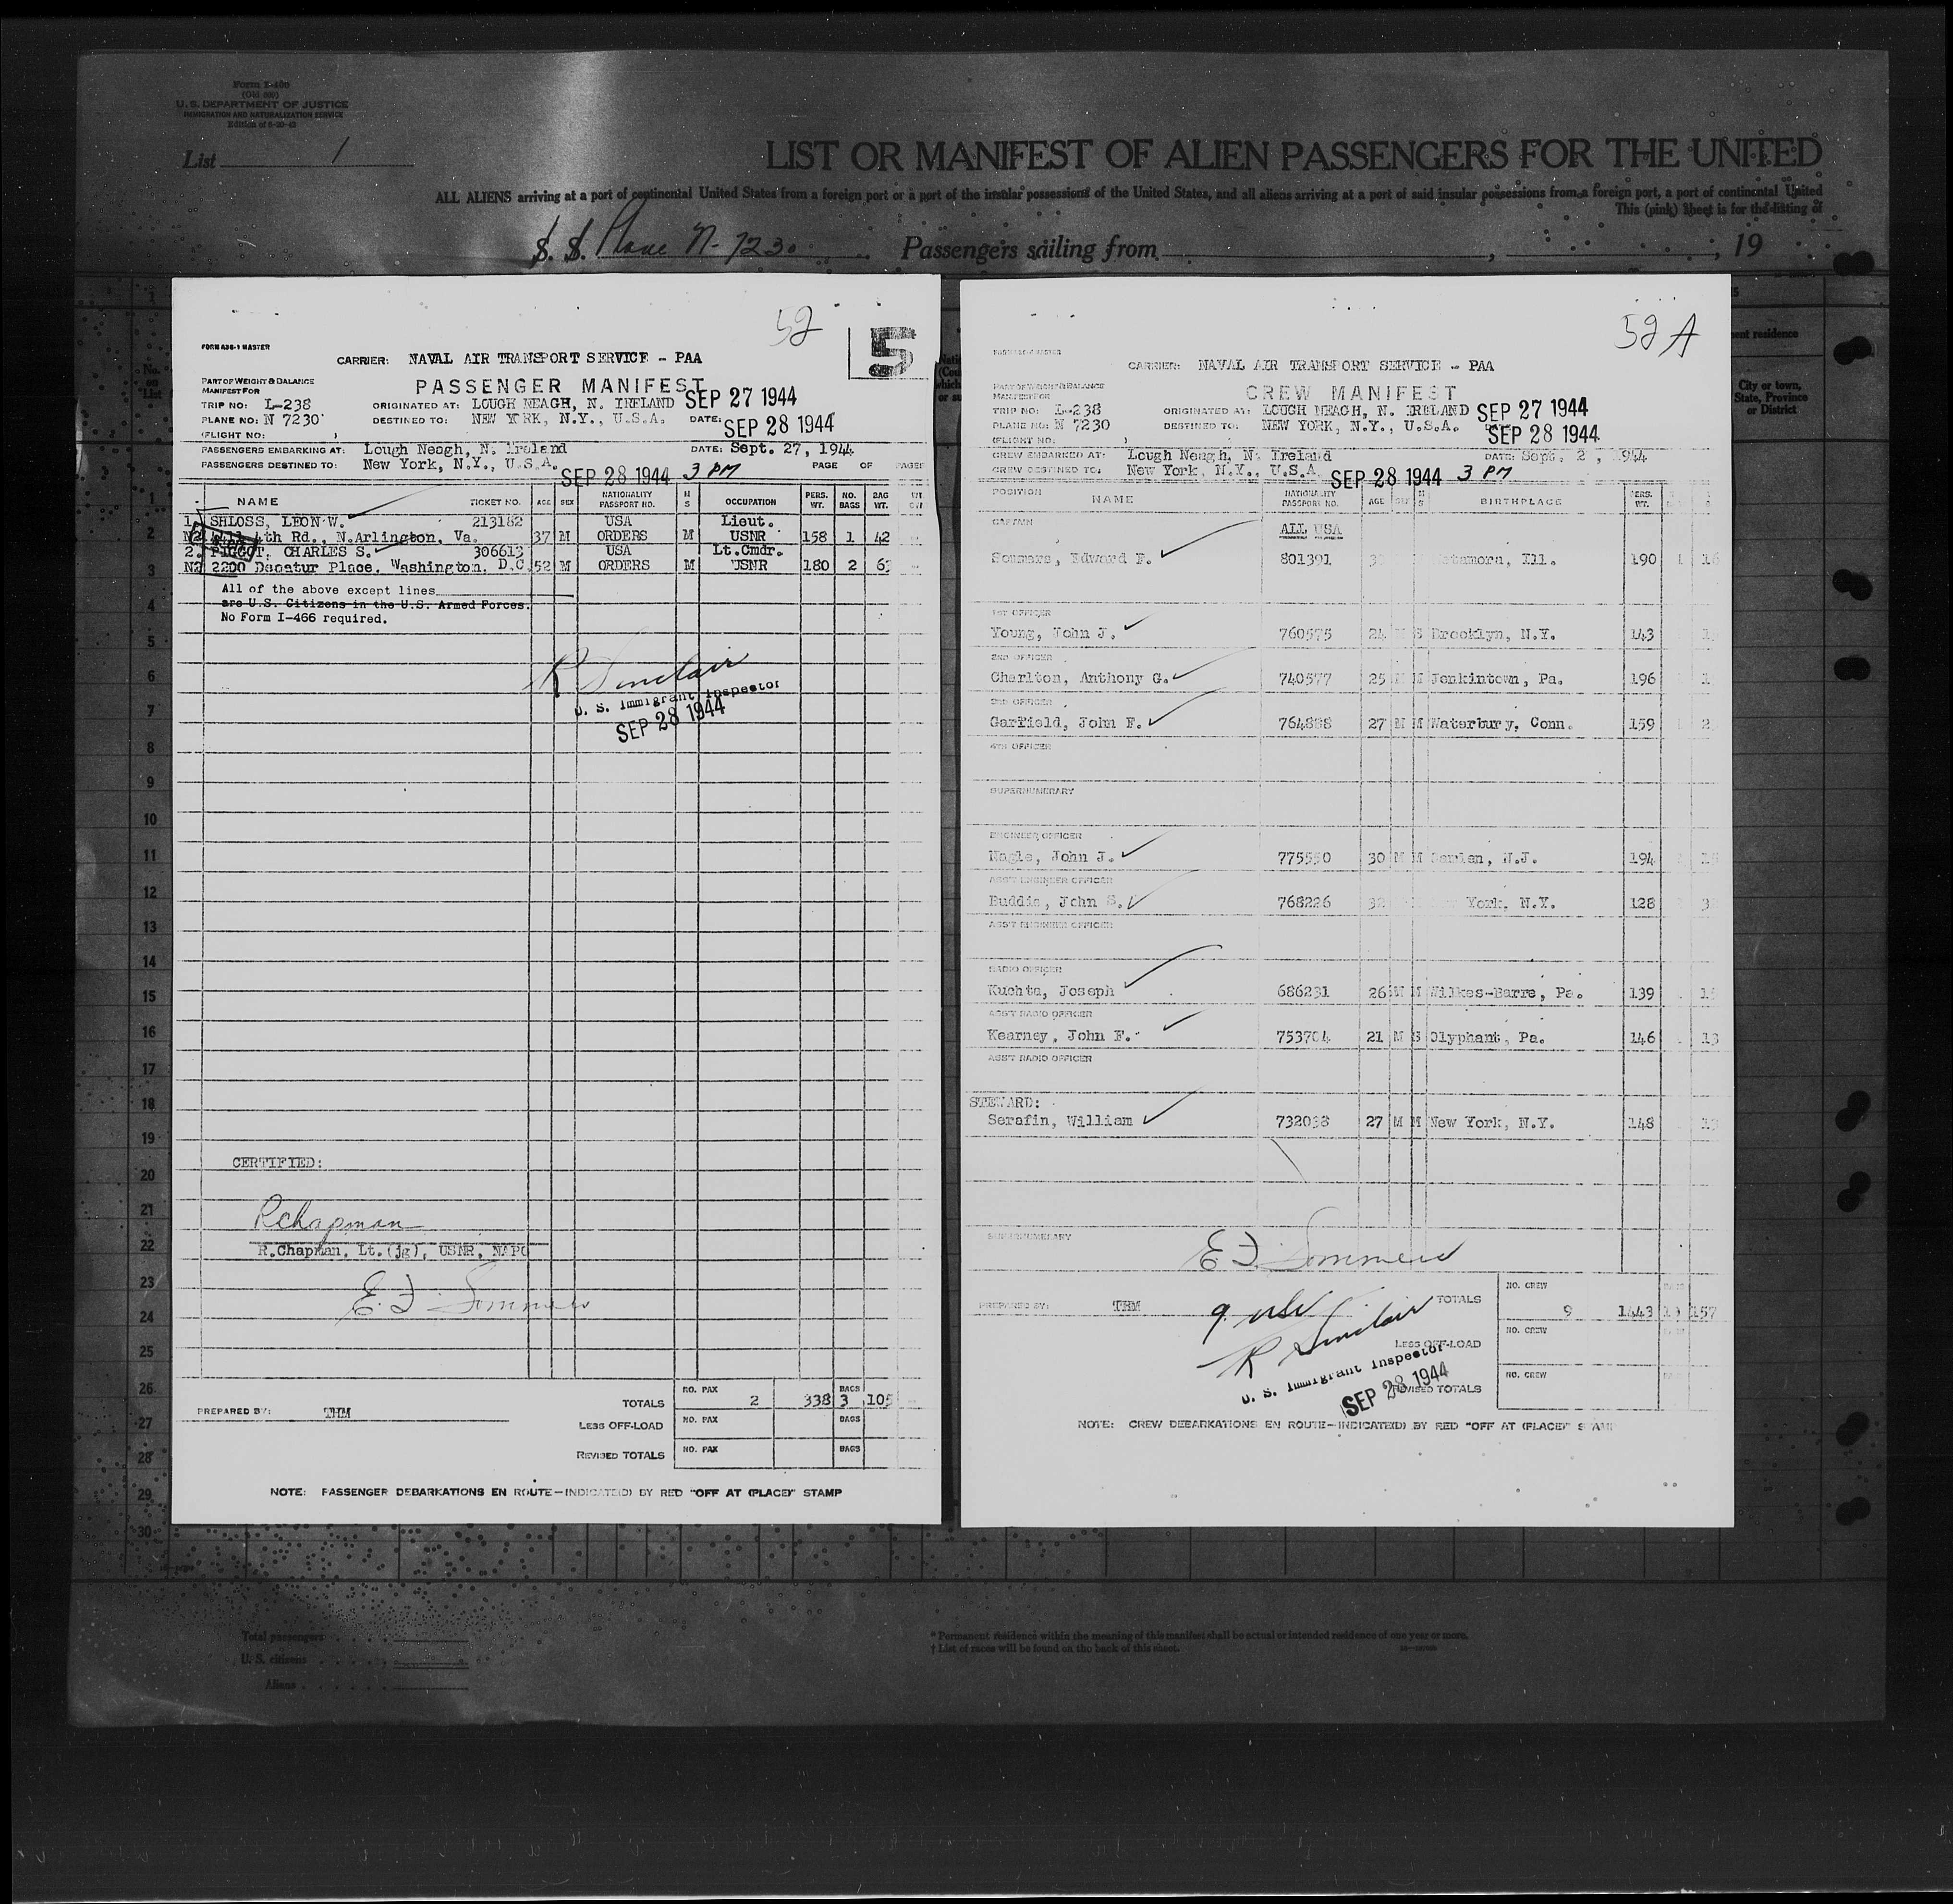 Form I-400
(Old 500)
U. S. DEPARTMENT OF JUSTICE
IMMIGRATION AND NATURALIZATION SERVICE
List 1
LIST OR MANIFEST OF ALIEN PASSENGERS FOR THE UNITED
ALL ALIENS arriving at a port of continental United States from a foreign port or a port of the insular possessions of the United States, and all aliens arriving at a port of said insular possessions from a foreign port, a port of continental United
This (pink) sheet is for the listing of
S. S. Plane N-7230 Passengers sailing from , , 19
52
5
FORM A36-1 MASTER
CARRIER: NAVAL AIR TRANSPORT SERVICE - PAA
PART OF WEIGHT & BALANCE
MANIFEST FOR
PASSENGER MANIFEST
SEP 27 1944
TRIP NO: L-238 ORIGINATED AT: LOUGH NEAGH, N. IRELAND
PLANE NO: N 7230 DESTINED TO: NEW YORK, N.Y., U.S.A. DATE: SEP 28 1944
(FLIGHT NO: )
PASSENGERS EMBARKING AT: Lough Neagh, N. Ireland DATE: Sept. 27, 1944
PASSENGERS DESTINED TO: New York, N.Y., U.S.A. SEP 28 1944 3 PM PAGE OF PAGES
NAME TICKET NO. AGE SEX NATIONALITY PASSPORT NO. M S OCCUPATION PERS. WT. NO. BAGS BAG WT.
1. SHLOSS, LEON W. 213182 USA Lieut.
4th Rd., N.Arlington, Va. 37 M ORDERS M USNR 158 1 42
2. PIGGOT, CHARLES S. 306613 USA Lt.Cmdr.
2200 Decatur Place, Washington, D.C. 52 M ORDERS M USNR 180 2 63
All of the above except lines
are U.S. Citizens in the U.S. Armed Forces.
No Form I-466 required.
R Sinclair
U. S. Immigrant Inspector
SEP 28 1944
CERTIFIED:
R Chapman
R.Chapman, Lt.(jg), USNR, NAPO
E. F. Sommers
PREPARED BY: THM
TOTALS NO. PAX 2 338 BAGS 3 105
LESS OFF-LOAD NO. PAX BAGS
REVISED TOTALS NO. PAX BAGS
NOTE: PASSENGER DEBARKATIONS EN ROUTE—INDICATE(D) BY RED "OFF AT (PLACE)" STAMP
52 A
CARRIER: NAVAL AIR TRANSPORT SERVICE - PAA
PART OF WEIGHT & BALANCE
MANIFEST FOR
CREW MANIFEST
TRIP NO: L-238 ORIGINATED AT: LOUGH NEAGH, N. IRELAND SEP 27 1944
PLANE NO: N 7230 DESTINED TO: NEW YORK, N.Y., U.S.A. SEP 28 1944
(FLIGHT NO: )
CREW EMBARKED AT: Lough Neagh, N. Ireland DATE: Sept. 2 , 1944
CREW DESTINED TO: New York, N.Y., U.S.A. SEP 28 1944 3 PM
POSITION NAME NATIONALITY PASSPORT NO. AGE SEX M S BIRTHPLACE PERS. WT.
CAPTAIN ALL USA
Sommers, Edward F. 801391 Ill. 190
1ST OFFICER
Young, John J. 760575 24 M S Brooklyn, N.Y. 143
2ND OFFICER
Charlton, Anthony G. 740577 25 M M Jenkintown, Pa. 196
3RD OFFICER
Garfield, John F. 764888 27 M M Waterbury, Conn. 159
4TH OFFICER
SUPERNUMERARY
ENGINEER OFFICER
Nagle, John J. 775550 30 M M N.J. 194
ASS'T ENGINEER OFFICER
Buddie, John S. 768226 32 York, N.Y. 128
ASS'T ENGINEER OFFICER
RADIO OFFICER
Kuchta, Joseph 686231 26 M M Wilkes-Barre, Pa. 139
ASS'T RADIO OFFICER
Kearney, John F. 753704 21 M S Olyphant, Pa. 146 13
ASS'T RADIO OFFICER
STEWARD:
Serafin, William 732038 27 M M New York, N.Y. 148
SUPERNUMERARY
E F. Sommers
PREPARED BY: THM
TOTALS NO. CREW 9 1443 157
9 usc
R Sinclair
LESS OFF-LOAD NO. CREW
U. S. Immigrant Inspector
SEP 28 1944
REVISED TOTALS NO. CREW
NOTE: CREW DEBARKATIONS EN ROUTE—INDICATE(D) BY RED "OFF AT (PLACE)" STAMP
City or town,
State, Province
or District
Total passengers
U. S. citizens
Aliens
* Permanent residence within the meaning of this manifest shall be actual or intended residence of one year or more.
† List of races will be found on the back of this sheet.